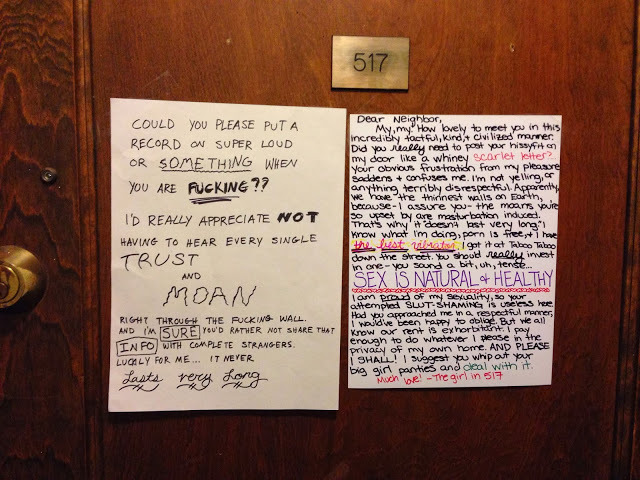 517
COULD YOU PLEASE PUT A
RECORD ON SUPER LOUD
OR SOMETHING WHEN
YOU ARE FUCKING??
I'D REALLY APPRECIATE NOT
HAVING TO HEAR EVERY SINGLE
TRUST
AND
MOAN
RIGHT THROUGH THE FUCKING WALL.
AND I'M SURE YOU'D RATHER NOT SHARE THAT
INFO WITH COMPLETE STRANGERS.
LUCKLY FOR ME... IT NEVER
Lasts very Long
Dear Neighbor,
My, my. How lovely to meet you in this
incredibly tactful, kind, & civilized manner.
Did you really need to post your hissyfit on
my door like a whiney scarlet letter?
Your obvious frustration from my pleasure
saddens & confuses me. I'm not yelling, or
anything terribly disrespectful. Apparently,
we have the thinnest walls on Earth,
because - I assure you - the moans you're
so upset by are masturbation induced.
That's why it "doesn't last very long." I
know what I'm doing, porn is free, & I have
the best vibrator. I got it at Taboo Taboo
down the street. You should really invest
in one - you sound a bit, uh, tense...
SEX IS NATURAL & HEALTHY
I am proud of my sexuality, so your
attempted SLUT-SHAMING is useless hoe.
Had you approached me in a respectful manner,
I would've been happy to oblige. But we all
know our rent is exhorbitant. I pay
enough to do whatever I please in the
privacy of my own home. AND PLEASE
I SHALL! I suggest you whip out your
big girl panties and deal with it.
Much love! - The girl in 517